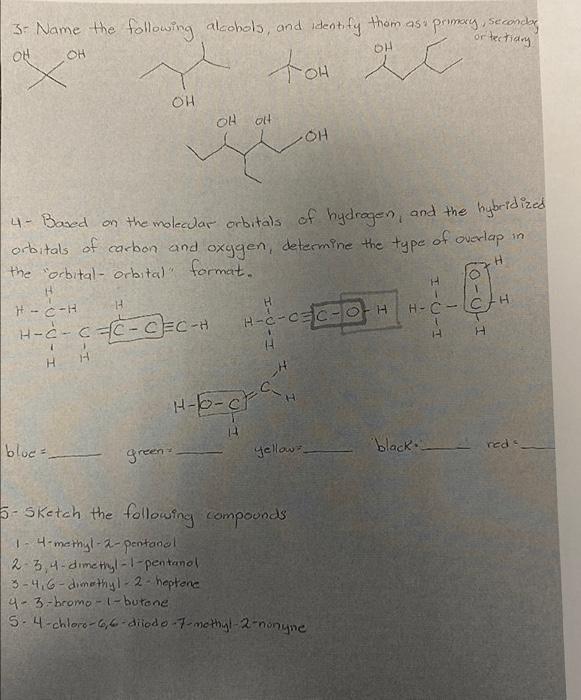 3- Name the following alcohols, and identify them as: primary, secondary
or tertiary
OH OH OH OH OH
OH OH OH
4- Based on the molecular orbitals of hydrogen, and the hybridized
orbitals of carbon and oxygen, determine the type of overlap in
the "orbital-orbital" format.
H
H - C - H H
H - C - C = C - C ≡ C - H
H H
H
H - C - C ≡ C - O - H
H
H O - H
H - C - C - H
H H
H
H - O - C = C
H H
blue = ____ green = ____ yellow = ____ black = ____ red = ____
5- Sketch the following compounds
1 - 4-methyl-2-pentanol
2 - 3,4-dimethyl-1-pentanol
3 - 4,6-dimethyl-2-heptene
4 - 3-bromo-1-butene
5 - 4-chloro-6,6-diiodo-7-methyl-2-nonyne